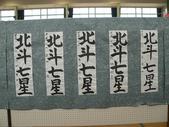 北斗七星
北斗七星
北斗七星
北斗七星
北斗七星